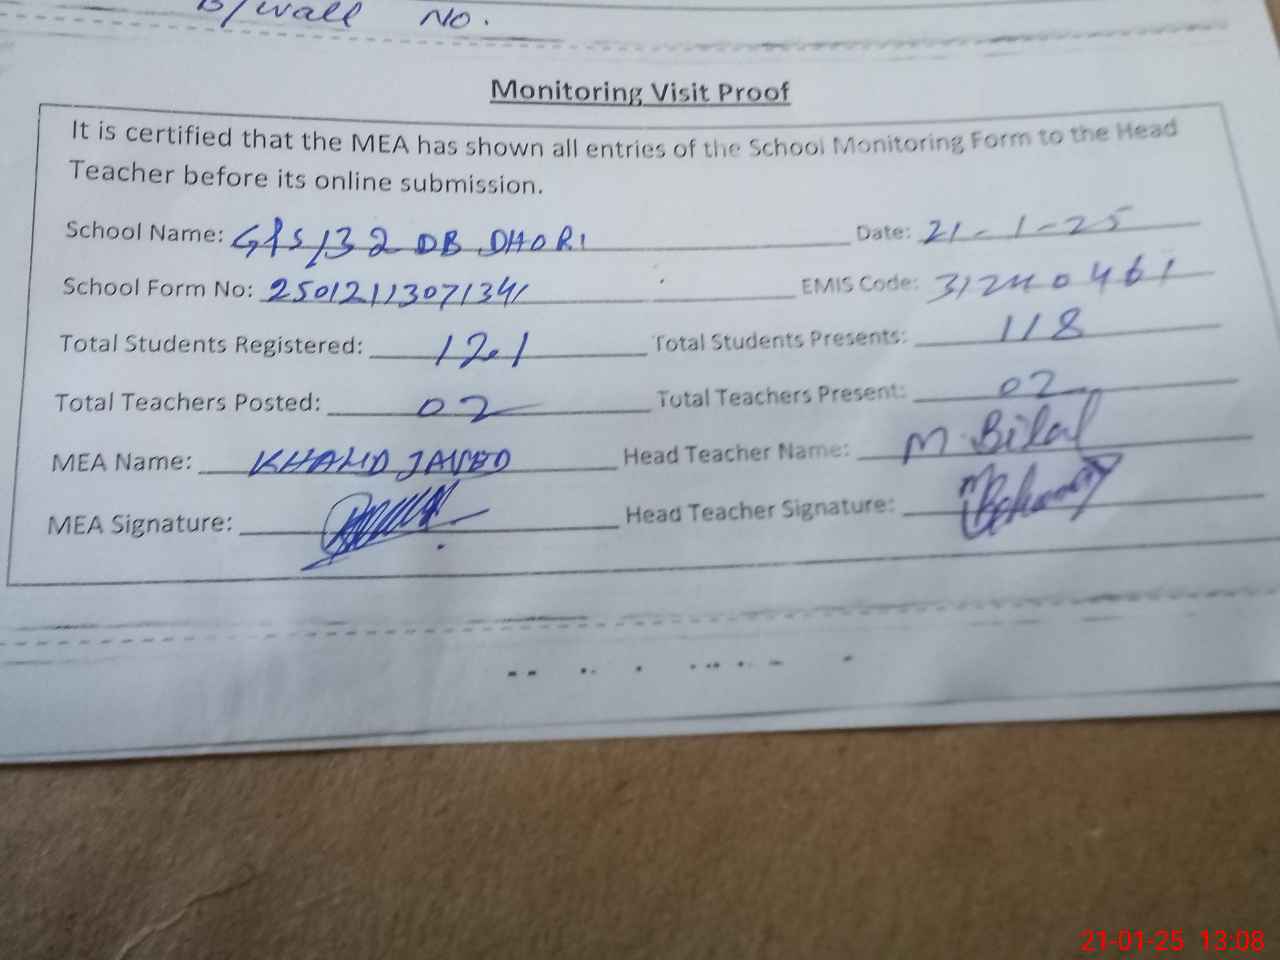 B/wall No.
Monitoring Visit Proof
It is certified that the MEA has shown all entries of the School Monitoring Form to the Head
Teacher before its online submission.
School Name: GPS 132 DB DHORI Date: 21-1-25
School Form No: 25012113071341 EMIS Code: 31240461
Total Students Registered: 121 Total Students Presents: 118
Total Teachers Posted: 02 Total Teachers Present: 02
MEA Name: KHALID JAVED Head Teacher Name: M. Bilal
MEA Signature: Head Teacher Signature:
21-01-25 13:08